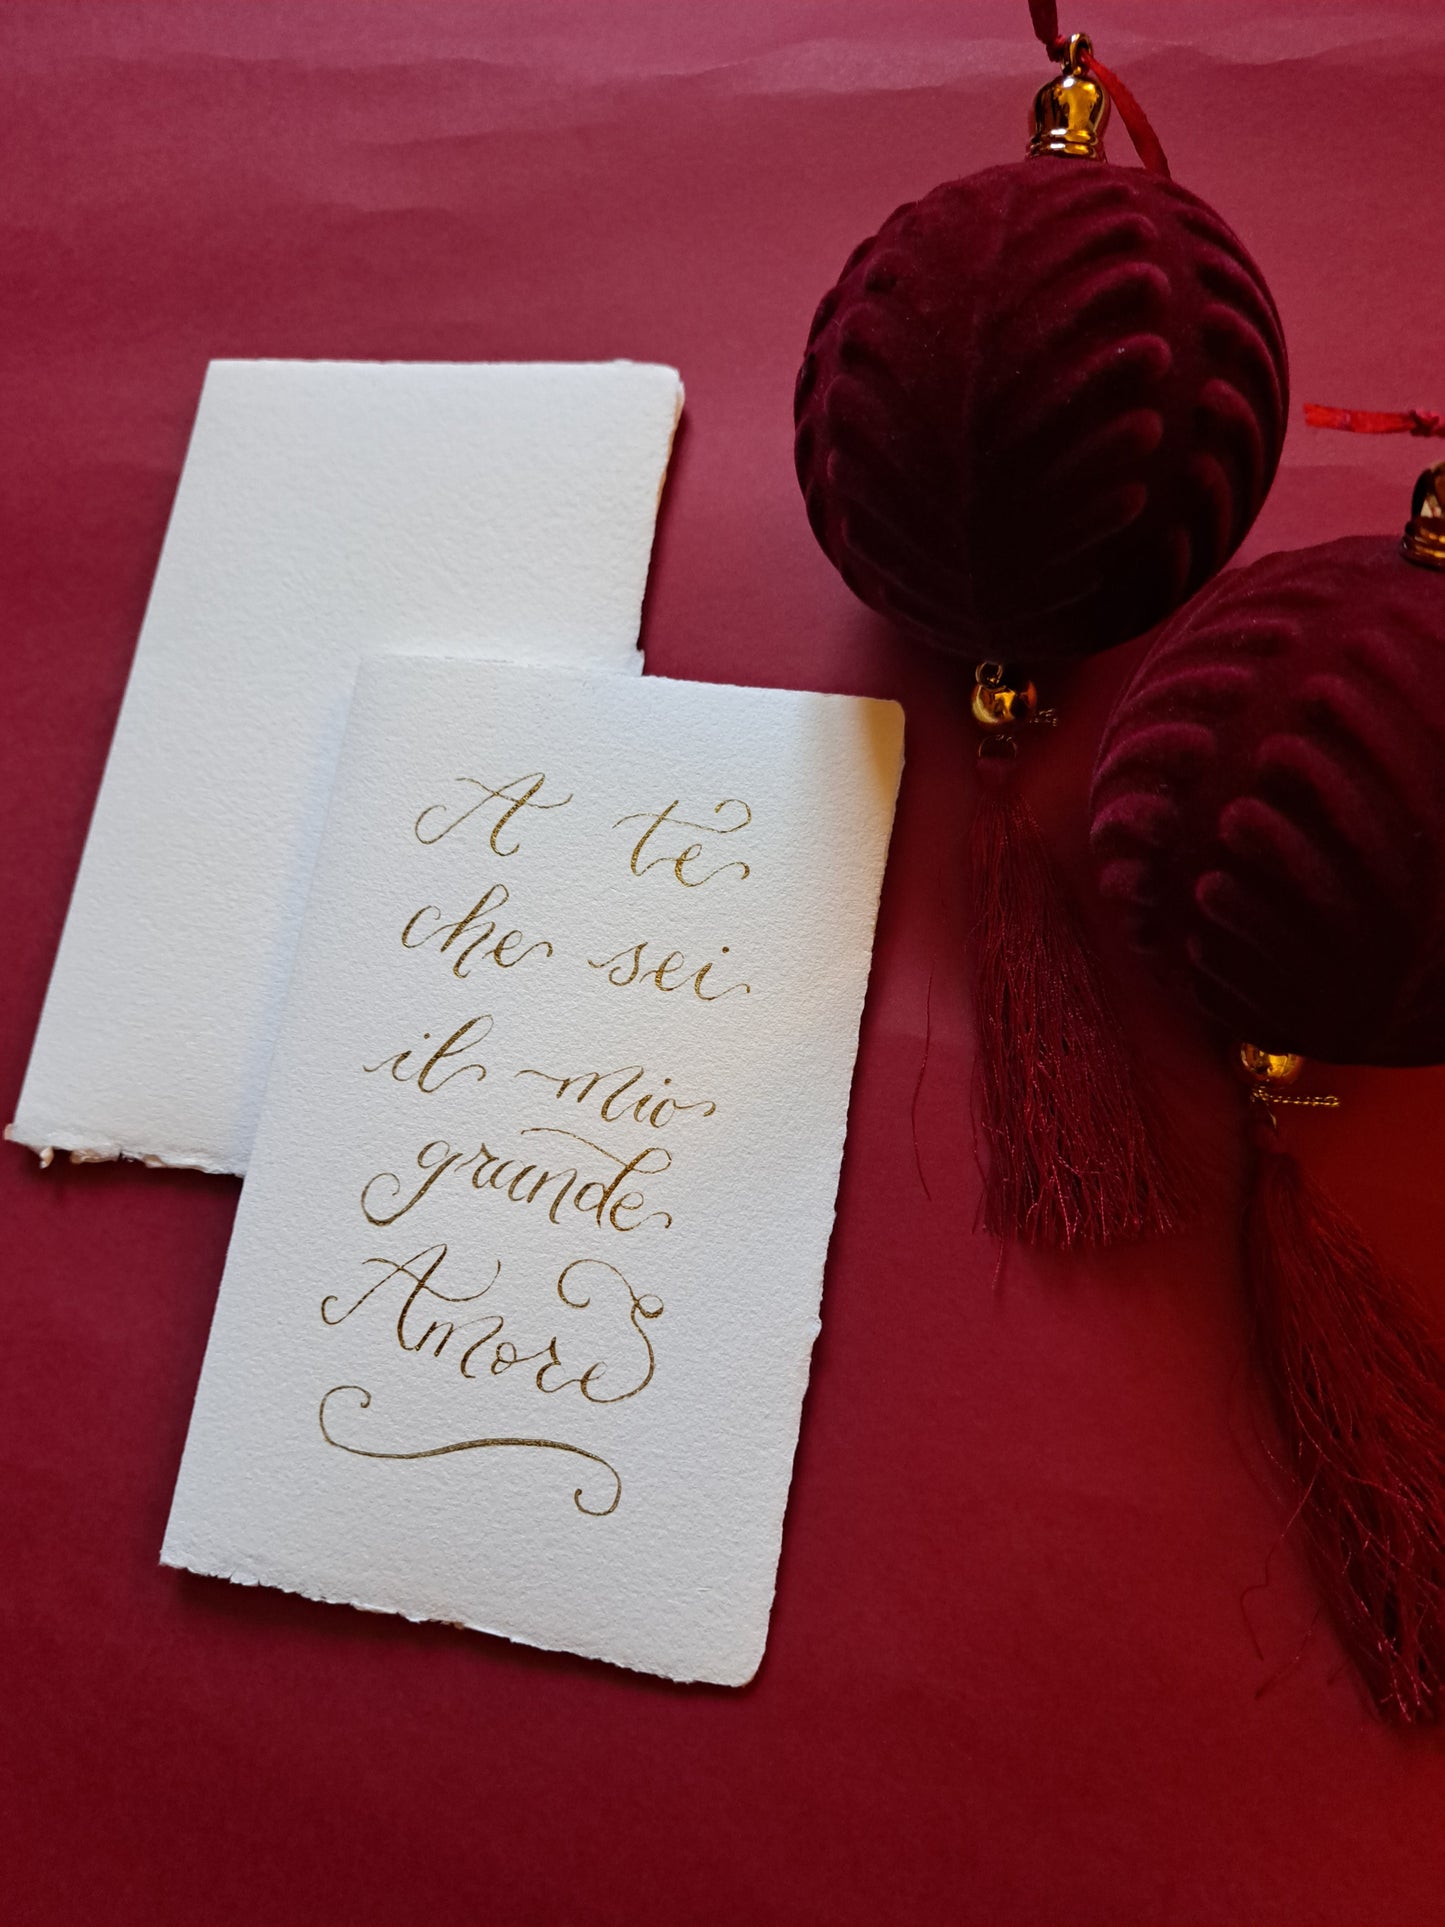 A te
che sei
il mio
grande
Amore